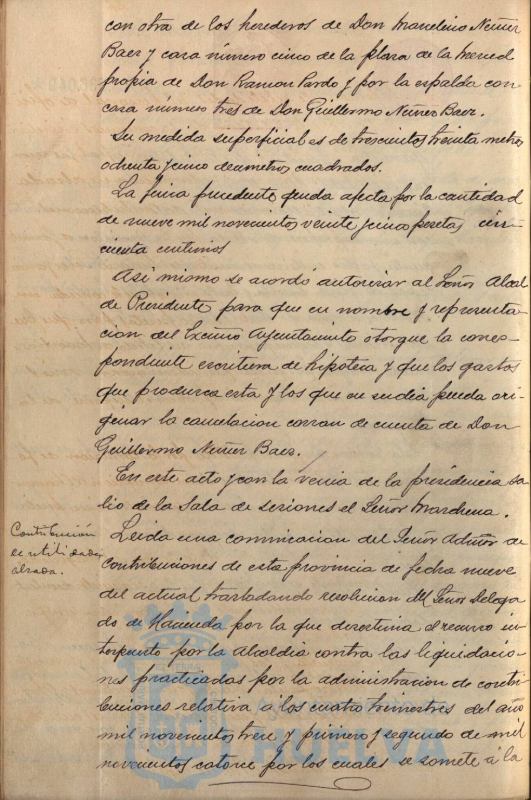 con otra de los herederos de Don Marcelino Nuñez
Baez y casa número cinco de la plaza de la Merced
propia de Don Ramon Pardo y por la espalda con
casa numero tres de Don Guillermo Nuñez Baez.
Su medida superficial es de trescientos treinta metros
ochenta y cinco decimetros cuadrados.
La finca precedente queda afecta por la cantidad
de nueve mil novecientos veinte y cinco pesetas cin-
cuenta centimos
Asi mismo se acordó autorizar al Señor Alcal
de Presidente para que en nombre y representa-
cion del Excmo Ayuntamiento otorgue la corres-
pondiente escritura de hipoteca y que los gastos
que produzca esta y los que en su dia pueda ori-
ginar la cancelacion corran de cuenta de Don
Guillermo Nuñez Baez.
En este acto y con la venia de la presidencia sa-
lio de la Sala de sesiones el Señor Marchena.
Contribución
de utilidades
alzada.
Leida una comunicacion del Señor Admor de
contribuciones de esta provincia de fecha nueve
del actual trasladando resolucion del Señor Delega
do de Hacienda por la que desestima el recurso in-
terpuesto por la Alcaldia contra las liquidacio-
nes practicadas por la administracion de contri
buciones relativa a los cuatro trimestres del año
mil novecientos trece y primero y segundo de mil
novecientos catorce por los cuales se somete á la
HUELVA